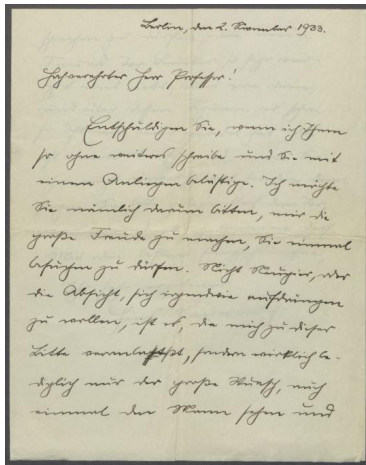 Berlin, den 2. November 1933.
Hochverehrter Herr Professor!
Entschuldigen Sie, wenn ich Ihnen
so ohne weiteres schreibe und Sie mit
einem Anliegen belästige. Ich möchte
Sie nämlich darum bitten, mir die
große Freude zu machen, Sie einmal
besuchen zu dürfen. Nicht Neugier, oder
die Absicht, sich irgendwie aufdrängen
zu wollen, ist es, die mich zu dieser
Bitte veranlaßt, sondern wirklich le-
diglich nur der große Wunsch, auch
einmal den Mann sehen und